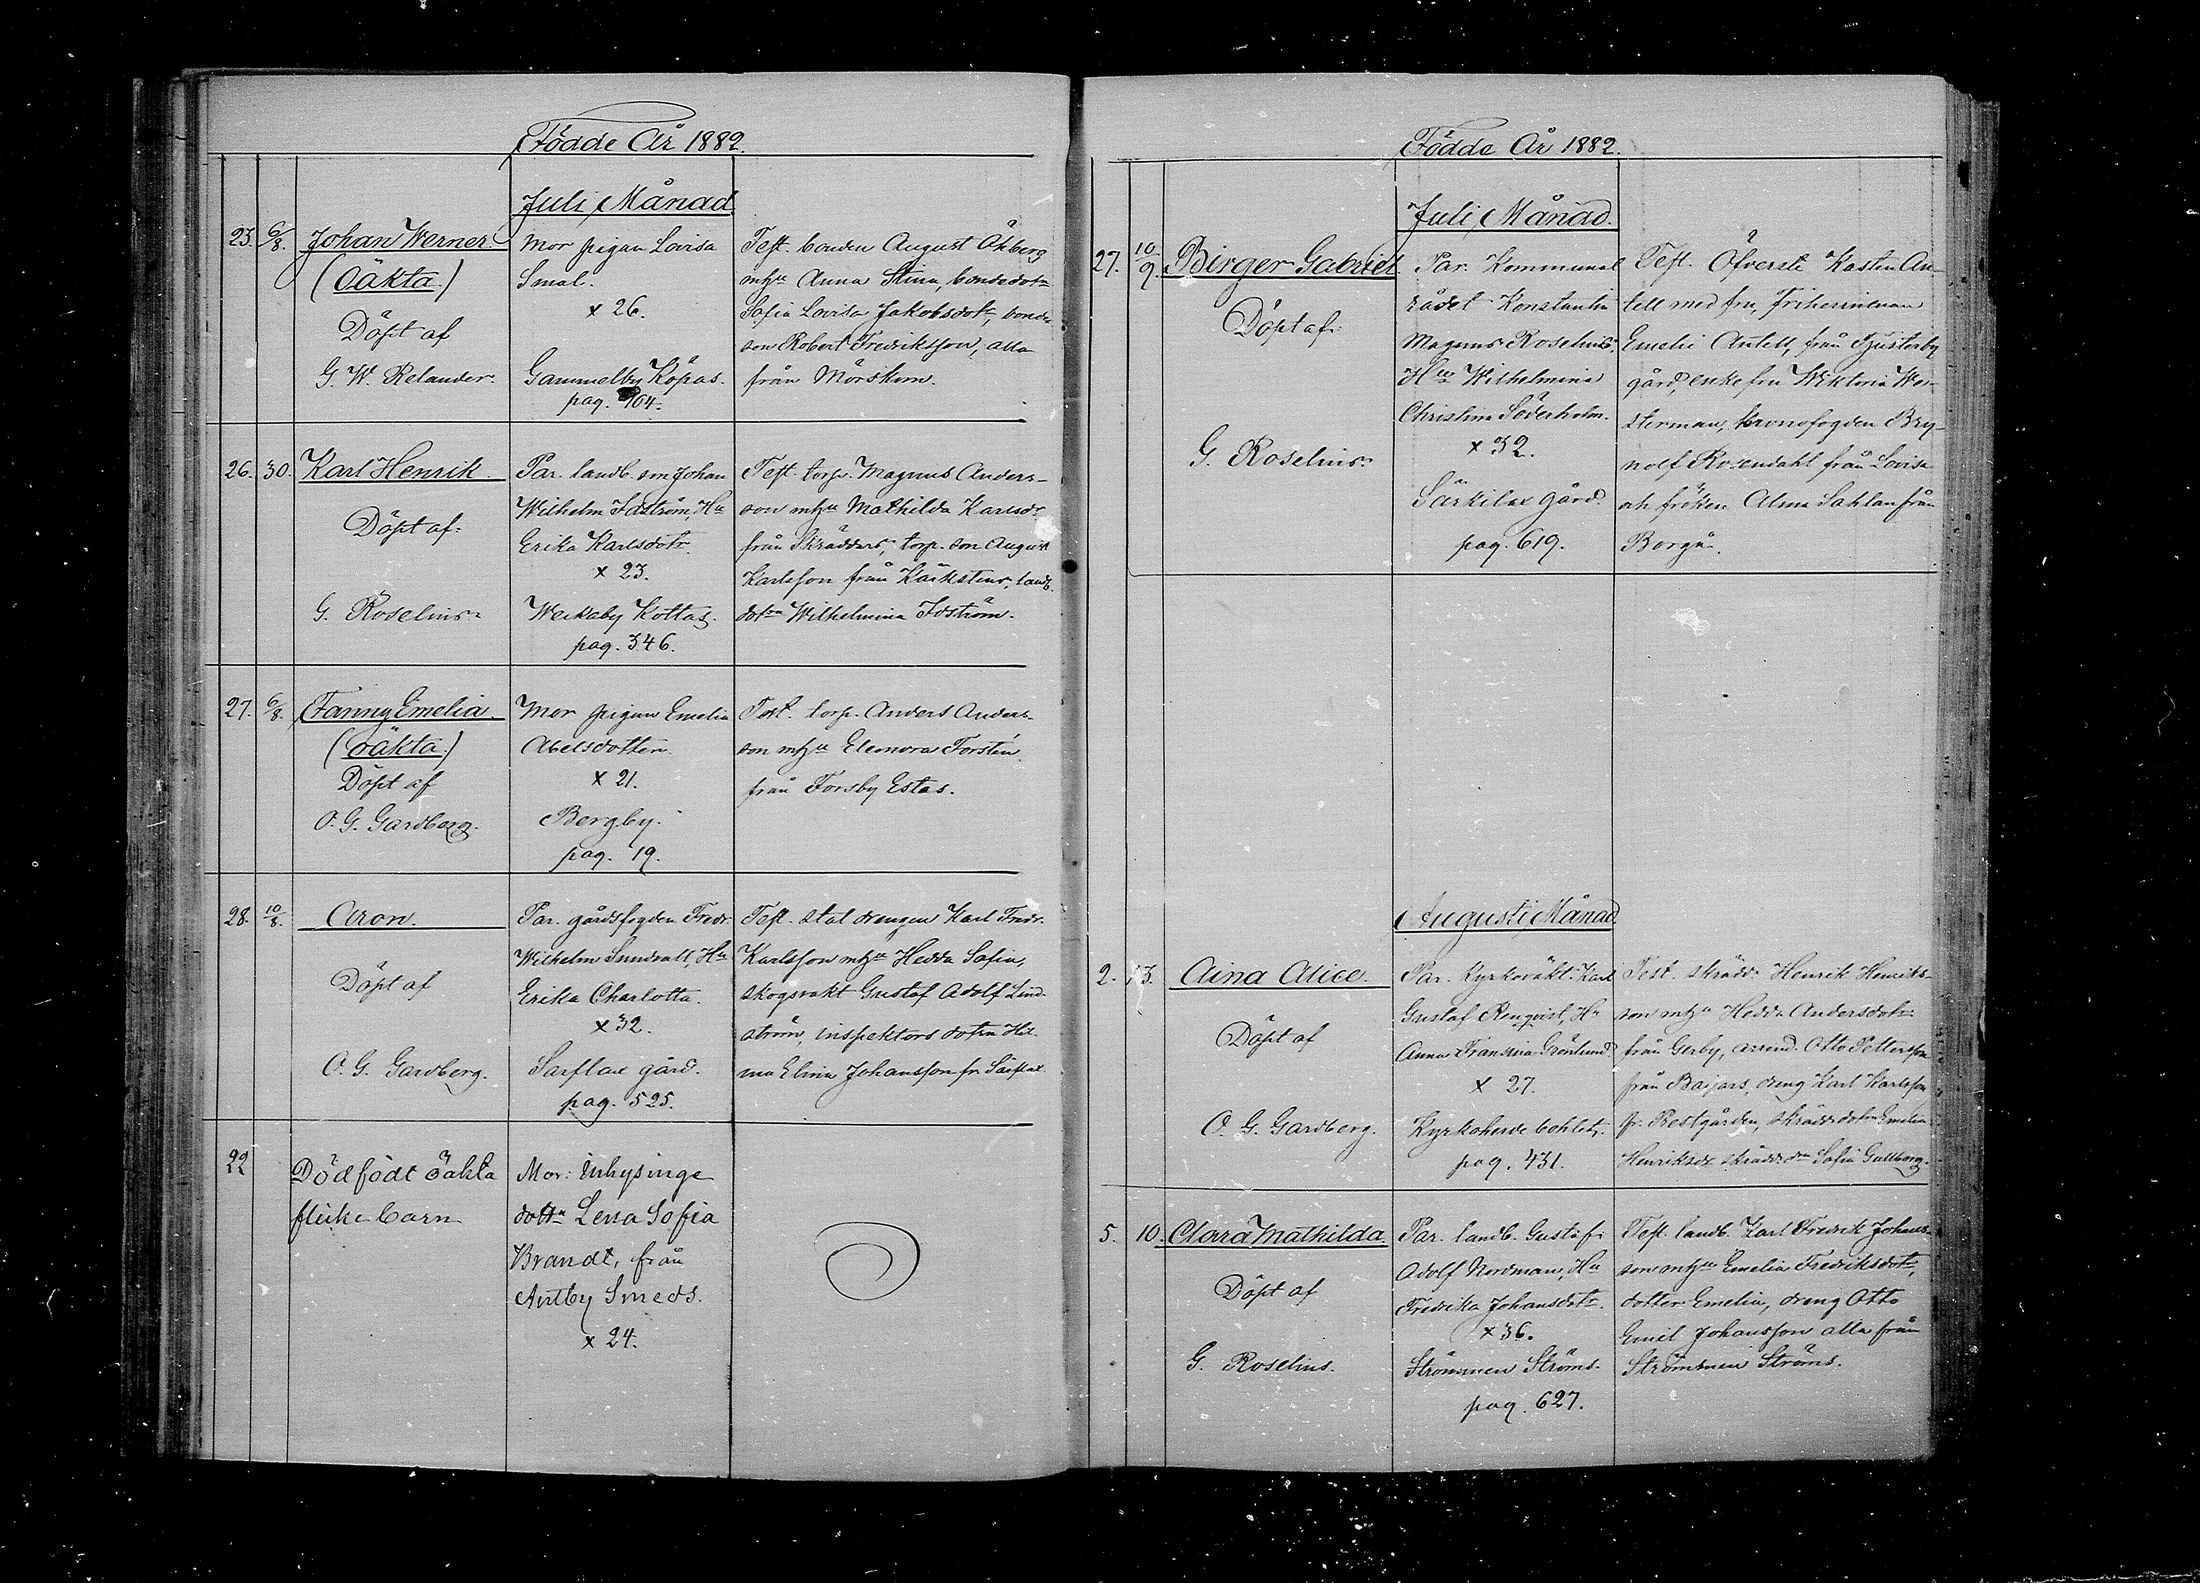 Födde År 1882.
Juli Månad
23. 6/8. Johan Werner.
(Oäkta.)
Döpt af
G. W. Relander.
Mor pigan Lovisa
Smal.
x 26.
Gammelby Köpas.
pag. 104.
Test. bonden August Åkberg
mhu Anna Stina, bondedotn
Sofia Lovisa Jakobsdotr, bonde
son Robert Fredriksson, alla
från Mörskom.
26. 30. Karl Henrik.
Döpt af:
G. Roselius.
Par. landb. son Johan
Wilhelm Idström, Hu
Erika Karlsdotr.
x 23.
Weckaby Kottas.
pag. 346.
Test. torp. Magnus Anders-
son mhu Mathilda Karlsdr
från Skräddars, torp. son August
Karlsson från Käkstens, landb.
dotrn Wilhelmina Idström.
27. 6/8. Fanny Emelia.
(oäkta.)
Döpt af
O. G. Gardberg.
Mor pigan Emelia
Abelsdotter.
x 21.
Bergby.
pag. 19.
Test. torp. Anders Anders-
son mhu Eleonora Forstén
från Forsby Estas.
28. 10/8. Aron.
Döpt af
O. G. Gardberg.
Par. gårdsfogden Fredr.
Wilhelm Sundvall, Hu
Erika Charlotta.
x 32.
Sarflax gård.
pag. 525.
Test. statdrengen Karl Fredr.
Karlsson mhu Hedda Sofia,
skogsvakt Gustaf Adolf Lind-
ström, inspektors dotrn Hil-
ma Elina Johansson fr. Sarflax
22 Dödfödt oäkta
flicke barn
Mor: Inhysinge
dottn Lena Sofia
Brandt, från
Antby Smeds.
x 24.
Födde År 1882.
Juli Månad.
27. 10/9. Birger Gabriel.
Döpt af:
G. Roselius.
Par. Kommunal
rådet Konstantin
Magnus Roselius,
Hu Wilhelmina
Christina Söderholm.
x 32.
Särkilax gård.
pag. 619.
Test. Öfverste Kasten An-
tell med fru, Friherrinnan
Emelie Antell, från Tjusterby
gård, enkefru Wiktoria We-
sterman, kronofogden Bry-
nolf Rosendahl från Lovisa
och fröken Alma Sahlan från
Borgå.
Augusti Månad
2. 13. Aina Alice.
Döpt af
O. G. Gardberg.
Par. Kyrkoväkt. Karl
Gustaf Renqvist, Hu
Anna Fransina Grönlund.
x 27.
Kyrkoherde bohlet.
pag. 431.
Test. skrädd. Henrik Henriks-
son mhu Hedda Andersdotr
från Gerby, arrend. Otto Pettersson
från Bajars, dreng Karl Karlsson
fr. Prestgården, skrädd. dotrn Emelia
Henriksdr skrädd. dn Sofia Gullberg.
5. 10. Clara Mathilda.
Döpt af
G. Roselius.
Par. landb. Gustaf
Adolf Nordman, Hu
Fredrika Johansdotr.
x 36.
Strömmen Ströms.
pag. 627.
Test. landb. Karl Fredrik Johans-
son mhu Emelia Fredriksdotr,
dotter Emelia, dreng Otto
Emil Johansson alla från
Strömmen Ströms.